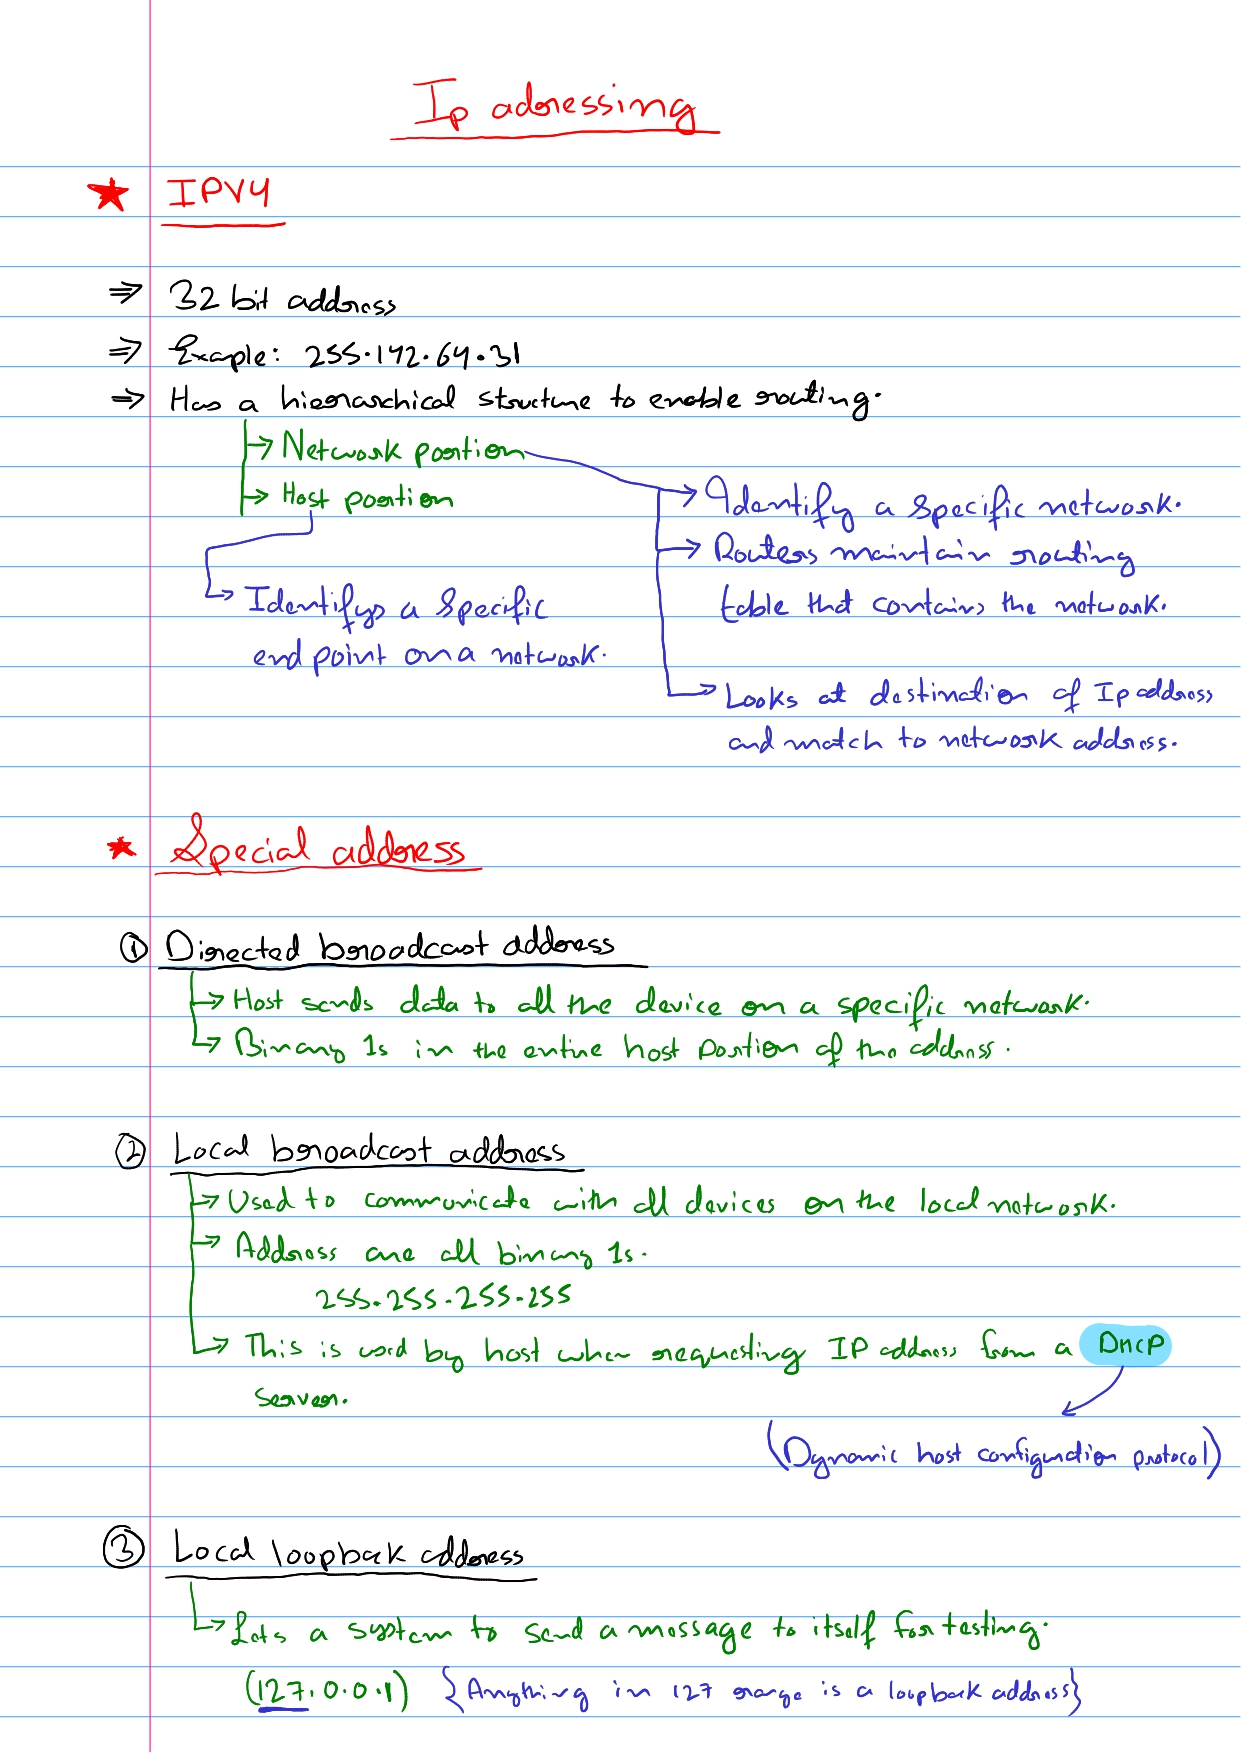 Ip addressing
★ IPV4
⇒ 32 bit address
⇒ Exaple: 255.172.64.31
⇒ Has a hierarchical structure to enable routing.
→ Network portion
→ Host portion
→ Identify a specific network.
→ Routers maintain routing
table that contains the network.
→ Identifys a specific
end point on a network.
→ Looks at destination of Ip address
and match to network address.
★ Special address
① Directed broadcast address
→ Host sends data to all the device on a specific network.
→ Binary 1s in the entire host portion of the address.
② Local broadcast address
→ Used to communicate with all devices on the local network.
→ Address are all binary 1s.
255.255.255.255
→ This is used by host when requesting IP address from a DHCP
server.
(Dynamic host configuration protocol)
③ Local loopback address
→ Lets a system to send a message to itself for testing.
(127.0.0.1) {Anything in 127 range is a loopback address}